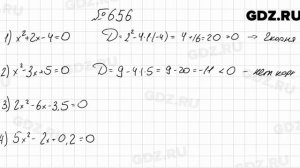 GDZ.RU
№656
1) x²+2x-4=0 D=2²-4·1·(-4)=4+16=20>0 -> 2 корня
2) x²-3x+5=0 D=9-4·5=9-20=-11<0 - нет корн
3) 2x²-6x-3,5=0
4) 5x²-2x+0,2=0
GDZ.RU